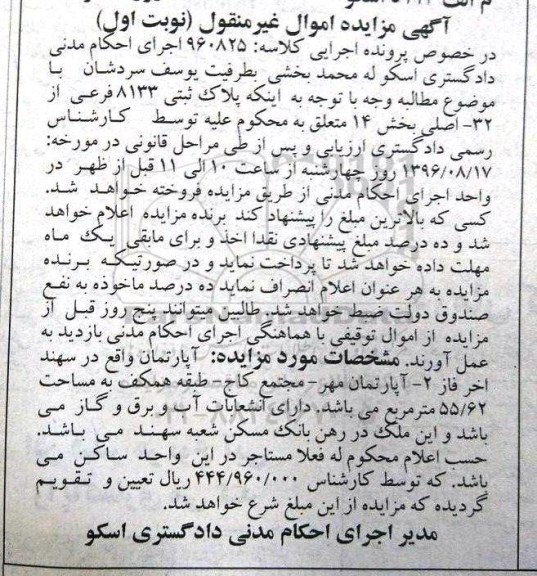 آگهی مزایده اموال غیرمنقول (نوبت اول)
در خصوص پرونده اجرایی کلاسه: ۹۶۰۸۲۵ اجرای احکام مدنی
دادگستری اسکو له محمد بخشی بطرفیت یوسف سردشان با
موضوع مطالبه وجه با توجه به اینکه پلاک ثبتی ۸۱۳۳ فرعی از
۳۲- اصلی بخش ۱۴ متعلق به محکوم علیه توسط کارشناس
رسمی دادگستری ارزیابی و پس از طی مراحل قانونی در مورخه:
۱۳۹۶/۰۸/۱۷ روز چهارشنبه از ساعت ۱۰ الی ۱۱ قبل از ظهر در
واحد اجرای احکام مدنی از طریق مزایده فروخته خواهد شد.
کسی که بالاترین مبلغ را پیشنهاد کند برنده مزایده اعلام خواهد
شد و ده درصد مبلغ پیشنهادی نقدا اخذ و برای مابقی یک ماه
مهلت داده خواهد شد تا پرداخت نماید و در صورتیکه برنده
مزایده به هر عنوان اعلام انصراف نماید ده درصد ماخوذه به نفع
صندوق دولت ضبط خواهد شد. طالبین میتوانند پنج روز قبل از
مزایده از اموال توقیفی با هماهنگی اجرای احکام مدنی بازدید به
عمل آورند. مشخصات مورد مزایده: آپارتمان واقع در سهند
اخر فاز ۲- آپارتمان مهر- مجتمع کاج- طبقه همکف به مساحت
۵۵/۶۲ مترمربع می باشد. دارای انشعابات آب و برق و گاز می
باشد و این ملک در رهن بانک مسکن شعبه سهند می باشد.
حسب اعلام محکوم له فعلا مستاجر در این واحد ساکن می
باشد. که توسط کارشناس ۴۴۴/۹۶۰/۰۰۰ ریال تعیین و تقویم
گردیده که مزایده از این مبلغ شرع خواهد شد.
مدیر اجرای احکام مدنی دادگستری اسکو